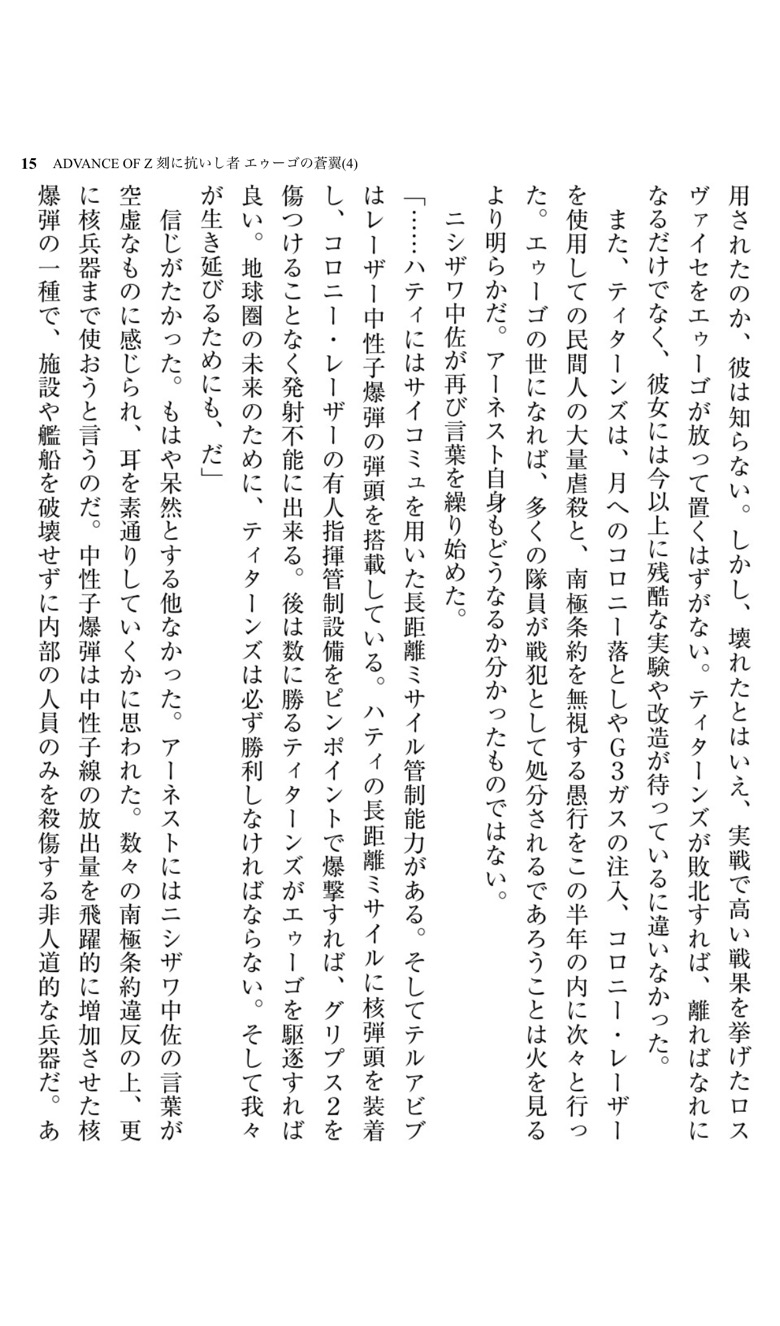 15 ADVANCE OF Z 刻に抗いし者 エゥーゴの蒼翼(4)
用されたのか、彼は知らない。しかし、壊れたとはいえ、実戦で高い戦果を挙げたロス
ヴァイセをエゥーゴが放って置くはずがない。ティターンズが敗北すれば、離ればなれに
なるだけでなく、彼女には今以上に残酷な実験や改造が待っているに違いなかった。
また、ティターンズは、月へのコロニー落としやG3ガスの注入、コロニー・レーザー
を使用しての民間人の大量虐殺と、南極条約を無視する愚行をこの半年の内に次々と行っ
た。エゥーゴの世になれば、多くの隊員が戦犯として処分されるであろうことは火を見る
より明らかだ。アーネスト自身もどうなるか分かったものではない。
ニシザワ中佐が再び言葉を繰り始めた。
「……ハティにはサイコミュを用いた長距離ミサイル管制能力がある。そしてテルアビブ
はレーザー中性子爆弾の弾頭を搭載している。ハティの長距離ミサイルに核弾頭を装着
し、コロニー・レーザーの有人指揮管制設備をピンポイントで爆撃すれば、グリプス2を
傷つけることなく発射不能に出来る。後は数に勝るティターンズがエゥーゴを駆逐すれば
良い。地球圏の未来のために、ティターンズは必ず勝利しなければならない。そして我々
が生き延びるためにも、だ」
信じがたかった。もはや呆然とする他なかった。アーネストにはニシザワ中佐の言葉が
空虚なものに感じられ、耳を素通りしていくかに思われた。数々の南極条約違反の上、更
に核兵器まで使おうと言うのだ。中性子爆弾は中性子線の放出量を飛躍的に増加させた核
爆弾の一種で、施設や艦船を破壊せずに内部の人員のみを殺傷する非人道的な兵器だ。あ